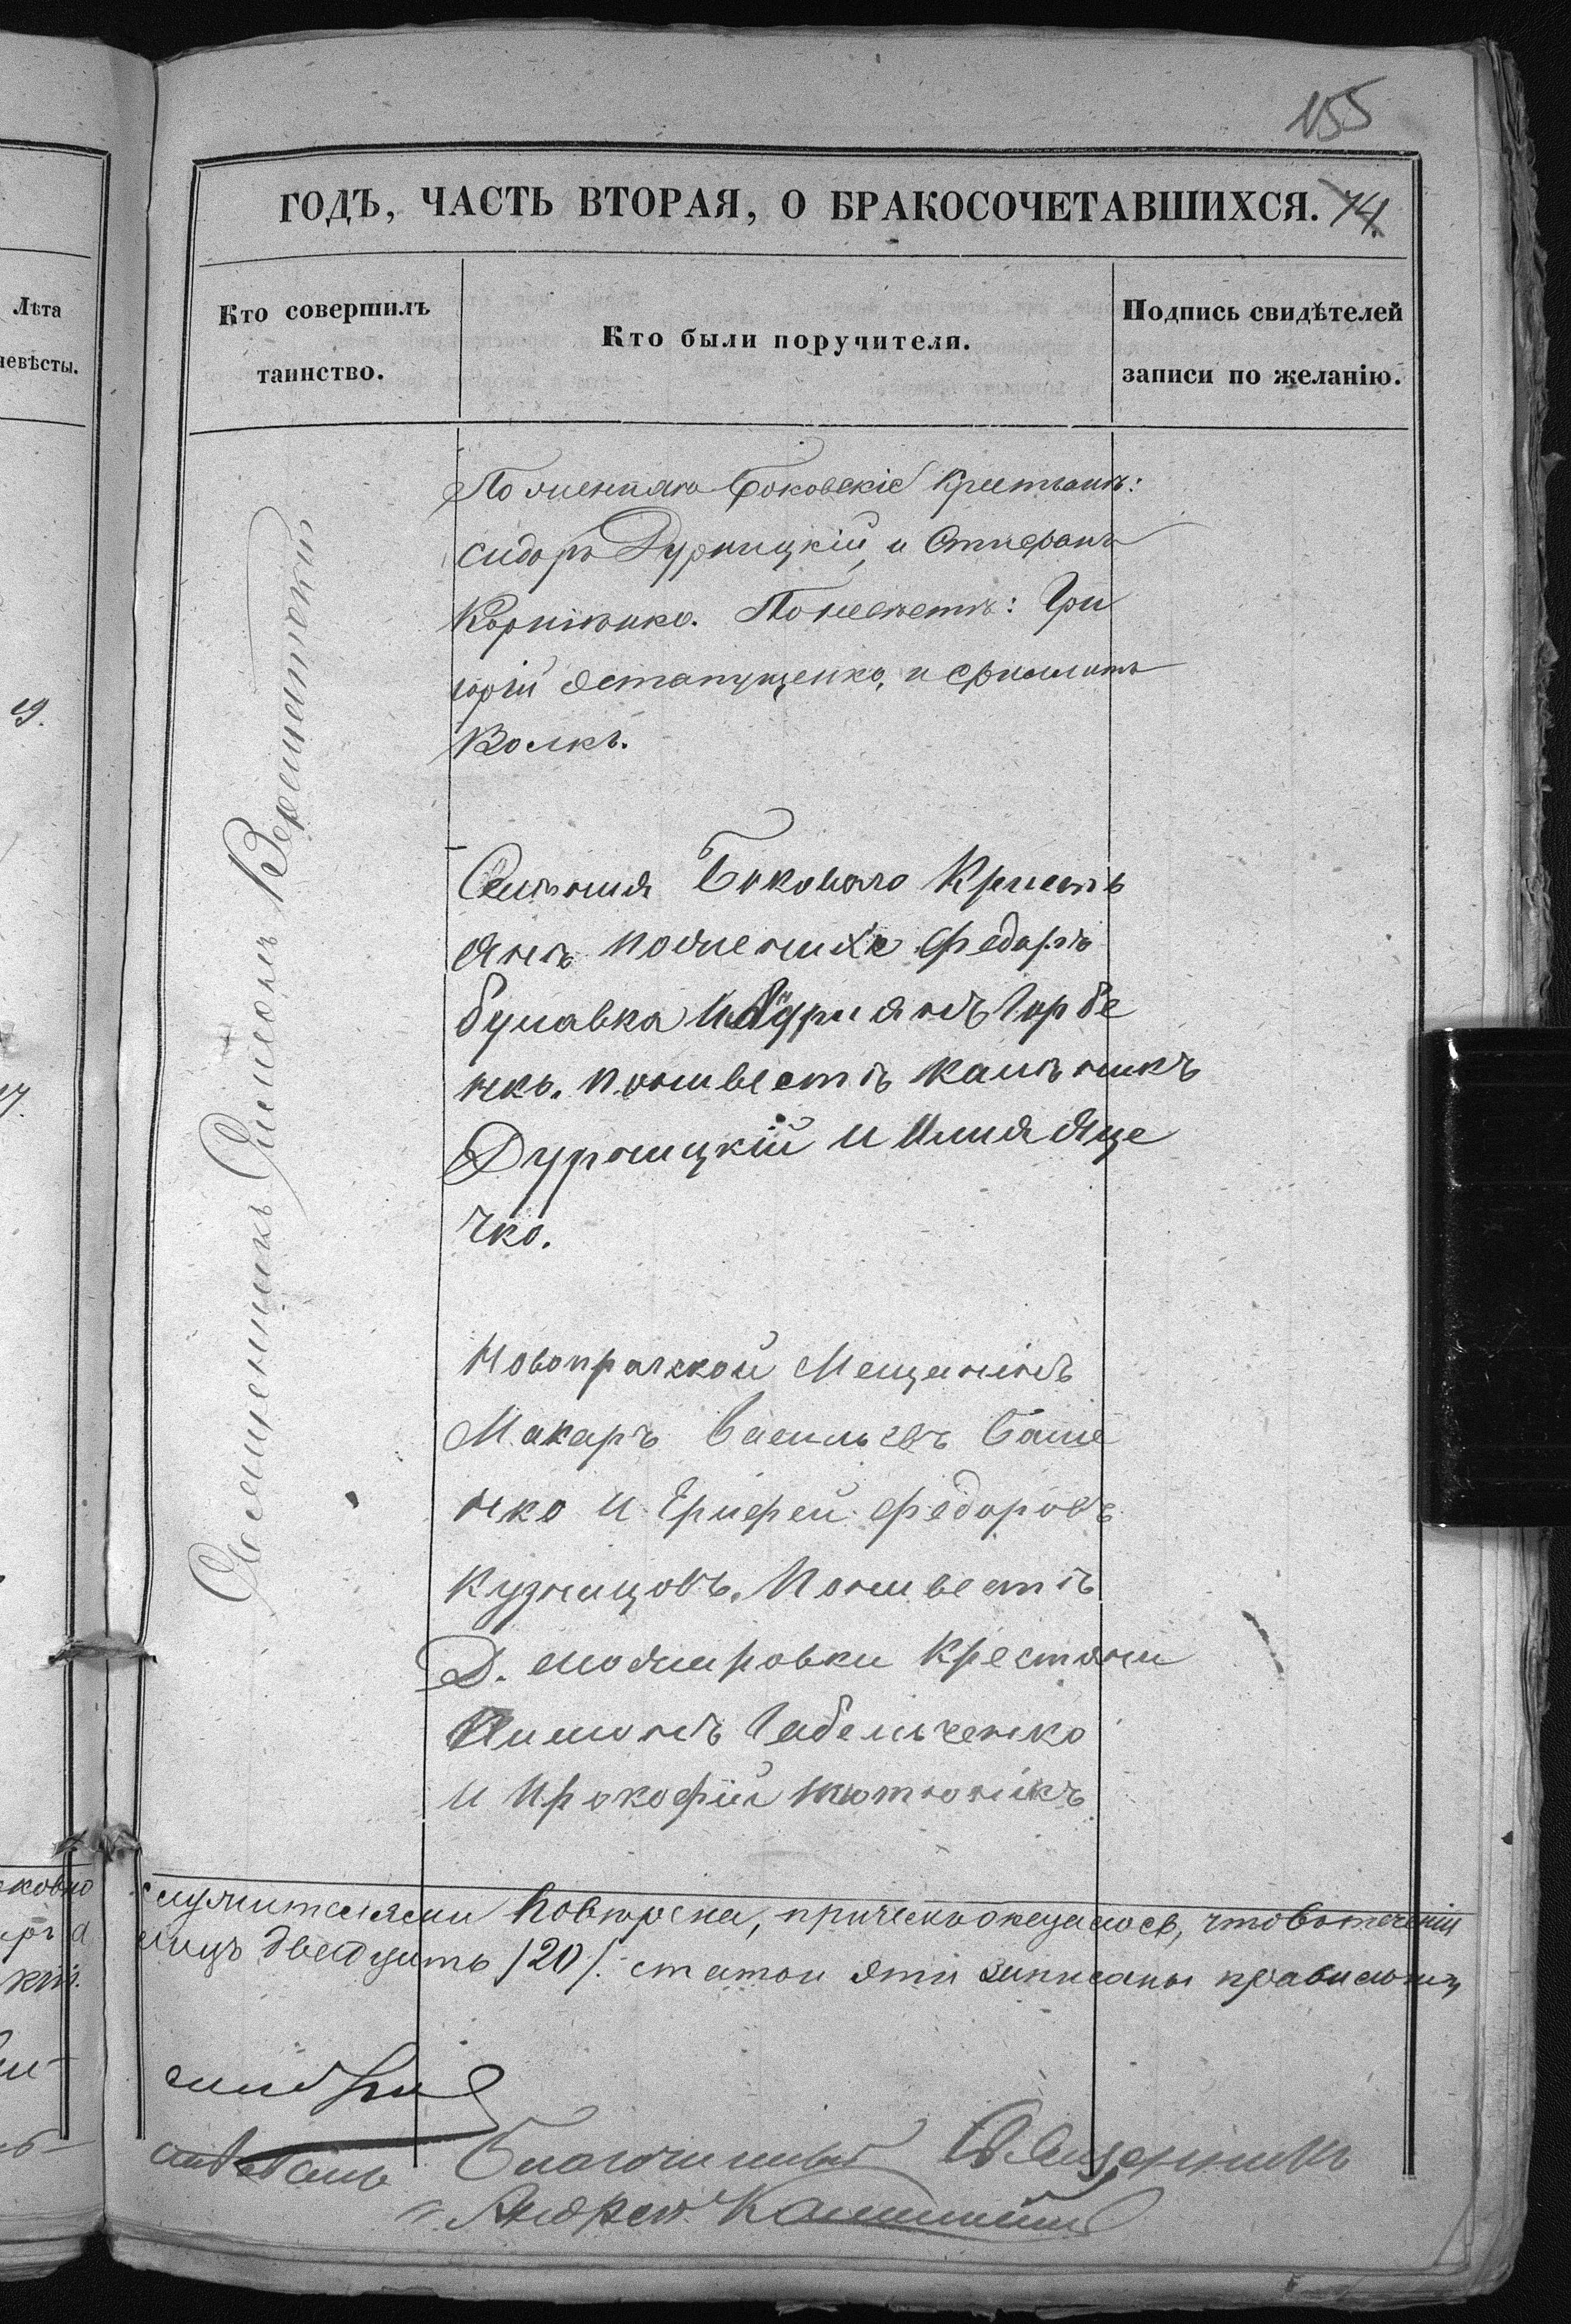 155
ГОДЪ, ЧАСТЬ ВТОРАЯ, О БРАКОСОЧЕТАВШИХСЯ. 74.
Лѣта
невѣсты.
Кто совершилъ
таинство.
Кто были поручители.
Подпись свидѣтелей
записи по желанію.
19.
17.
Священникъ Симеонъ
По женихѣ Боковскіе Крестьяне:
Сидоръ Дурницкій, и Стефанъ
Корніенко. По невестѣ: Гри
горій Остапущенко, и Филипъ
Волкъ.
Селенія Боковаго Кресть
яне по женихе Федоръ
булавка и Адриянъ Горбе
нко. по невестѣ Калѣникъ
Дурницкій и Илия Яце
нко.
Новопражской Мещанинъ
Макаръ Васильевъ Баше
нко и Ерифей Федоровъ
Кузнецовъ. По невестѣ
Д. крестяни
Пименъ Гавельченко
и Прокофій
служителями повѣрена, причемъ оказалось, что въ теченіи
двадцать /20/. статой эти записаны правильно
Благочинный Священникъ
Андрей